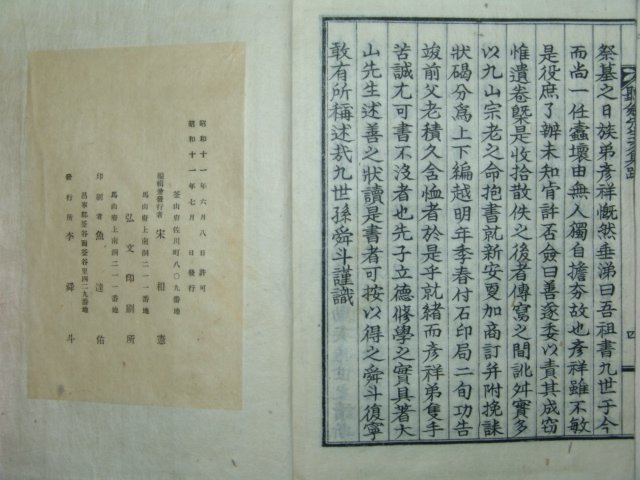 祭墓之日族弟彦祥慨然垂涕曰吾祖書九世于今
而尚一任蠹壞由無人獨自擔夯故也彦祥雖不敏
是役庶了辦未知肯許否僉曰善遂委以責其成窃
惟遺卷槩是收拾散佚之後者傳寫之間訛舛實多
以九山宗老之命抱書就新安夏加商訂并附挽誄
狀碣分爲上下編越明年季春付石印局二旬功告
竣前父老積久含恤者於是乎就緒而彦祥弟隻手
苦誠尤可書不沒者也先子立德修學之實具著大
山先生述善之狀讀是書者可按以得之舜斗復寧
敢有所稱述哉九世孫舜斗謹識
四
昭和十一年六月八日許可
昭和十一年七月 日發行
釜山府佐川町八〇九番地
編輯兼發行者 宋相憲
馬山府上南洞二一一番地
弘文印刷所
馬山府上南洞二一一番地
印刷者 魚達佑
昌寧郡釜谷面釜谷里四二九番地
發行所 李舜斗